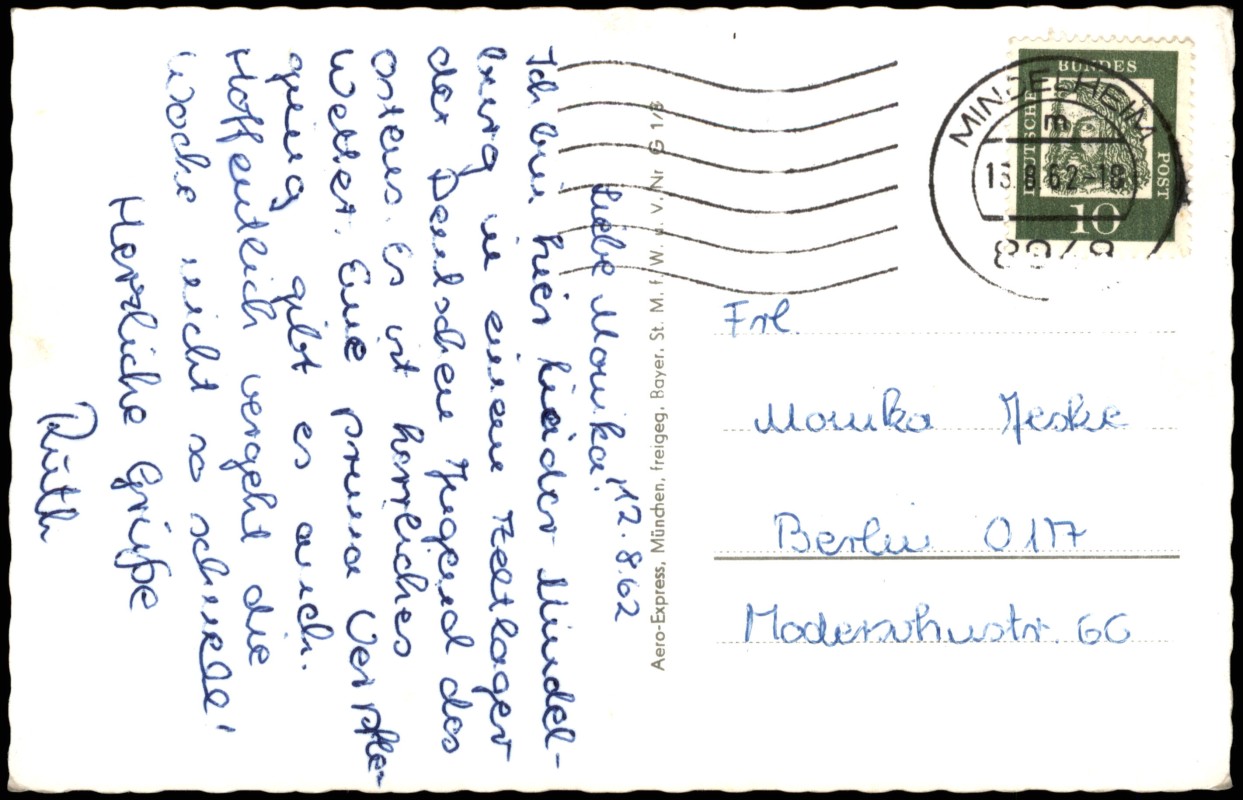 Liebe Monika! 12.8.62
Ich bin hier hinter Mindel-
burg in einem Zeltlager
der Deutschen Jugend des
Ostens. Es ist herrliches
Wetter. Eine prima Verpfle-
gung gibt es auch.
Hoffentlich vergeht die
Woche nicht so schnell!
Herzliche Grüße
Ruth
Aero-Express, München, freigeg. Bayer. St. M. f. W. u. v. Nr. G 1/
BUNDES
DEUTSCHE
POST
10
MINDELHEIM
m
13.8.62-18
8948
Frl.
Monika Jeske
Berlin O 117
Modersohnstr. 66